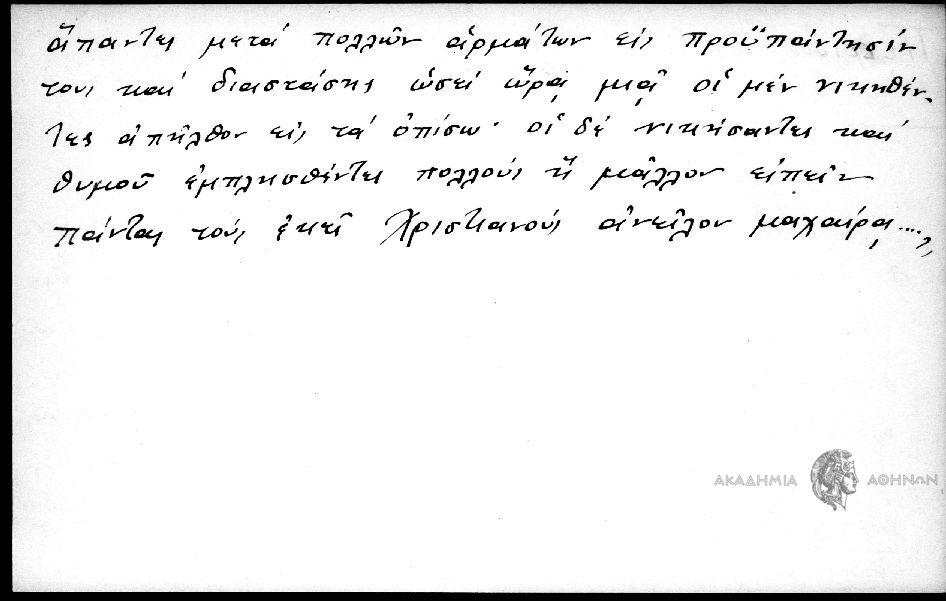 ἅπαντες μετά πολλῶν ἁρμάτων εἰς προϋπάντησίν
τους καί διαστάσης ὡσεί ὥρᾳ μιᾷ οἱ μέν νικηθέν-
τες ἀπῆλθον εἰς τά ὀπίσω· οἱ δέ νικήσαντες καί
θυμοῦ ἐμπλησθέντες πολλούς ἤ μᾶλλον εἰπεῖν
πάντας τούς ἐκεῖ Χριστιανούς ἀνεῖλον μαχαίρᾳ....,,
ΑΚΑΔΗΜΙΑ ΑΘΗΝΩΝ